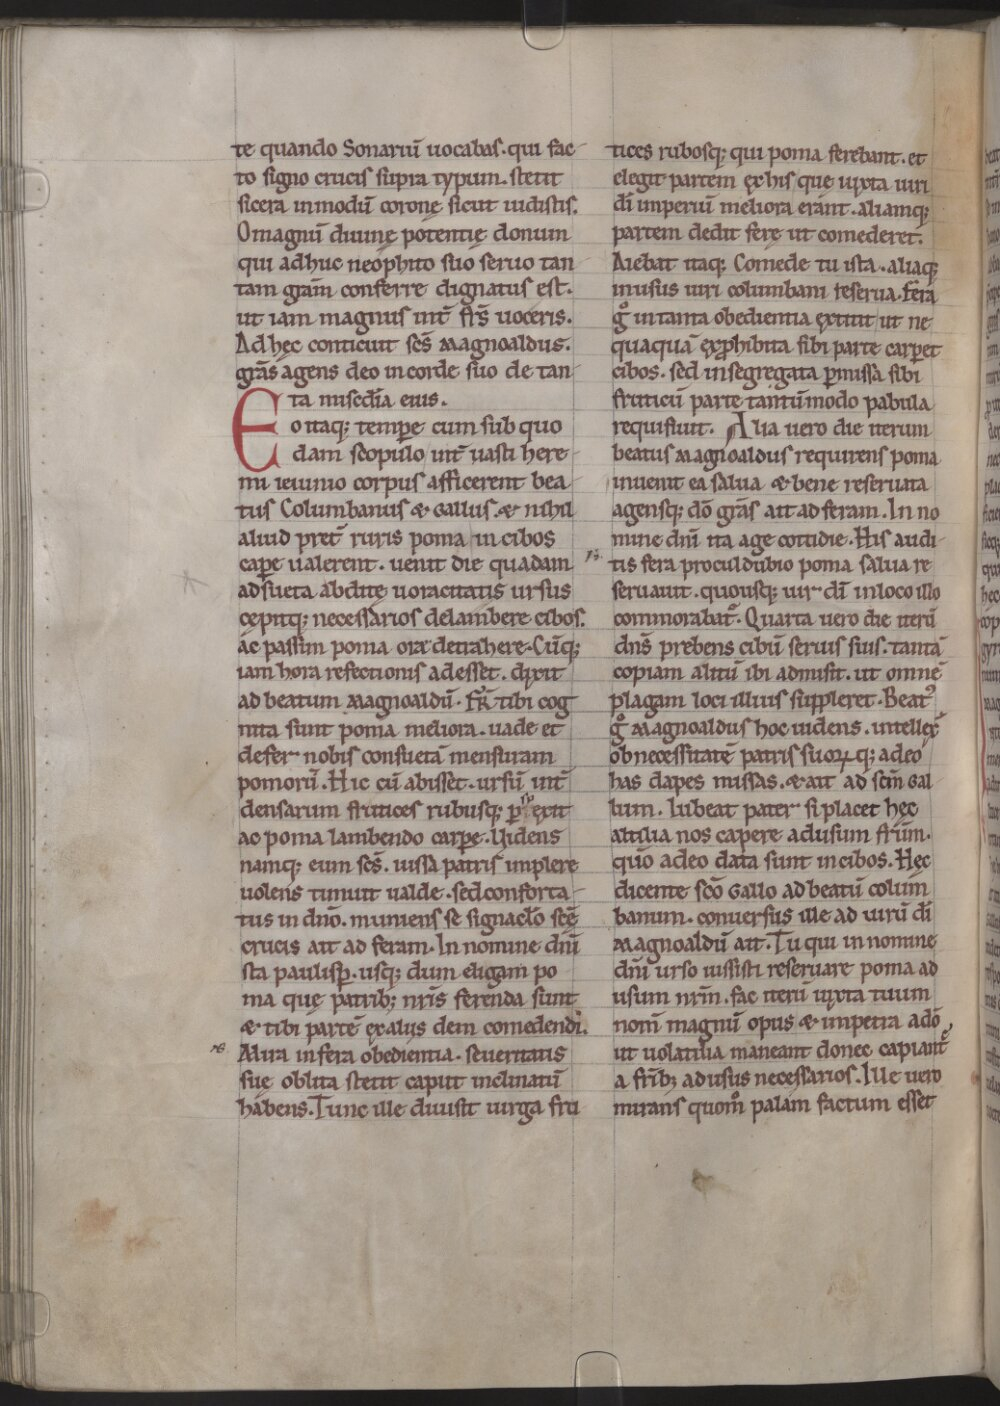 te quando Sonariū uocabas. qui fac
to signo crucis supra typum. stetit
sicera in modū coronę sicut uidistis.
O magnū diuinę potentię donum
qui adhuc neophito suo seruo tan
tam grām conferre dignatus est.
ut iam magnus int̄ fr̄s uoceris.
Ad hęc conticuit scs̄ magnoaldus.
grās agens deo in corde suo de tan
ta misedīa eius.
Eo itaq; tempe cum sub quo
dam scopulo int̄ uasti here
mi ieiunio corpus afficerent bea
tus Columbanus & Gallus. & nihil
aliud pret̄ ruris poma in cibos
cape ualerent. uenit die quadam
adsueta abditę uoracitatis ursus
cepitq; necessarios delambere cibos.
ac passim poma ora detrahere. Cūq;
iam hora refectionis adesset. dixit
ad beatum magnoaldū. Fr̄ tibi cog
nita sunt poma meliora. uade et
defer nobis consuetā mensuram
pomorū. Hic cū abisset. ursū int̄
densarum frutices rubusq; pspexit
ac poma lambendo carpe. Uidens
namq; eum scs̄. iussa patris implere
uolens timuit ualde. sed conforta
tus in dn̄o. muniens se signaclo scę̄
crucis ait ad feram. In nomine dn̄i
sta paulisp. usq; dum eligam po
ma quę patrib; nr̄is ferenda sunt
& tibi partē ex aliis dem comedendi.
Mira in fera obedientia. seueritatis
suę oblita stetit caput inclinatū
habens. Tunc ille diuisit uirga fru
tices rubosq; qui poma ferebant. et
elegit partem ex his quę iuxta uiri
dī imperiū meliora erant. aliamq;
partem dedit ferę ut comederet.
Aiebat itaq; Comede tu ista. aliaq;
in usus uiri columbani reserua. Fera
g° in tanta obedientia extitit ut ne
quaquā ex phibita sibi parte carpet
cibos. sed in segregata pmissa sibi
fruticū parte tantūmodo pabula
requisiuit. Alia uero die iterum
beatus magnoaldus requirens poma
inuenit ea salua & bene reseruata
agensq; dō grās ait ad feram. In no
mine dn̄i ita age cottidie. His audi
tis fera procul dubio poma salua re
seruauit. quousq; uir dī in loco illo
commorabat. Quarta uero die iterū
dn̄s prebens cibū seruis suis. tantā
copiam alitū ibi admisit. ut omnē
plagam loci illius suppleret. Beat9
g° magnoaldus hoc uidens. intellex̄
ob necessitatē patris suorūq; a deo
has dapes missas. & ait ad scm̄ Gal
lum. Iubeat pater si placet hęc
altilia nos capere ad usum frūm.
quō a deo data sunt in cibos. Hęc
dicente scō Gallo ad beatū colum
banum. conuersus ille ad uirū dī
magnoaldū ait. Tu qui in nomine
dn̄i urso iussisti reseruare poma ad
usum nrm̄. fac iterū iuxta tuum
nom̄ magnū opus & impetra a dō
ut uolatilia maneant donec capiant̄
a frīb; ad usus necessarios. Ille uero
mirans quom° palam factum esset